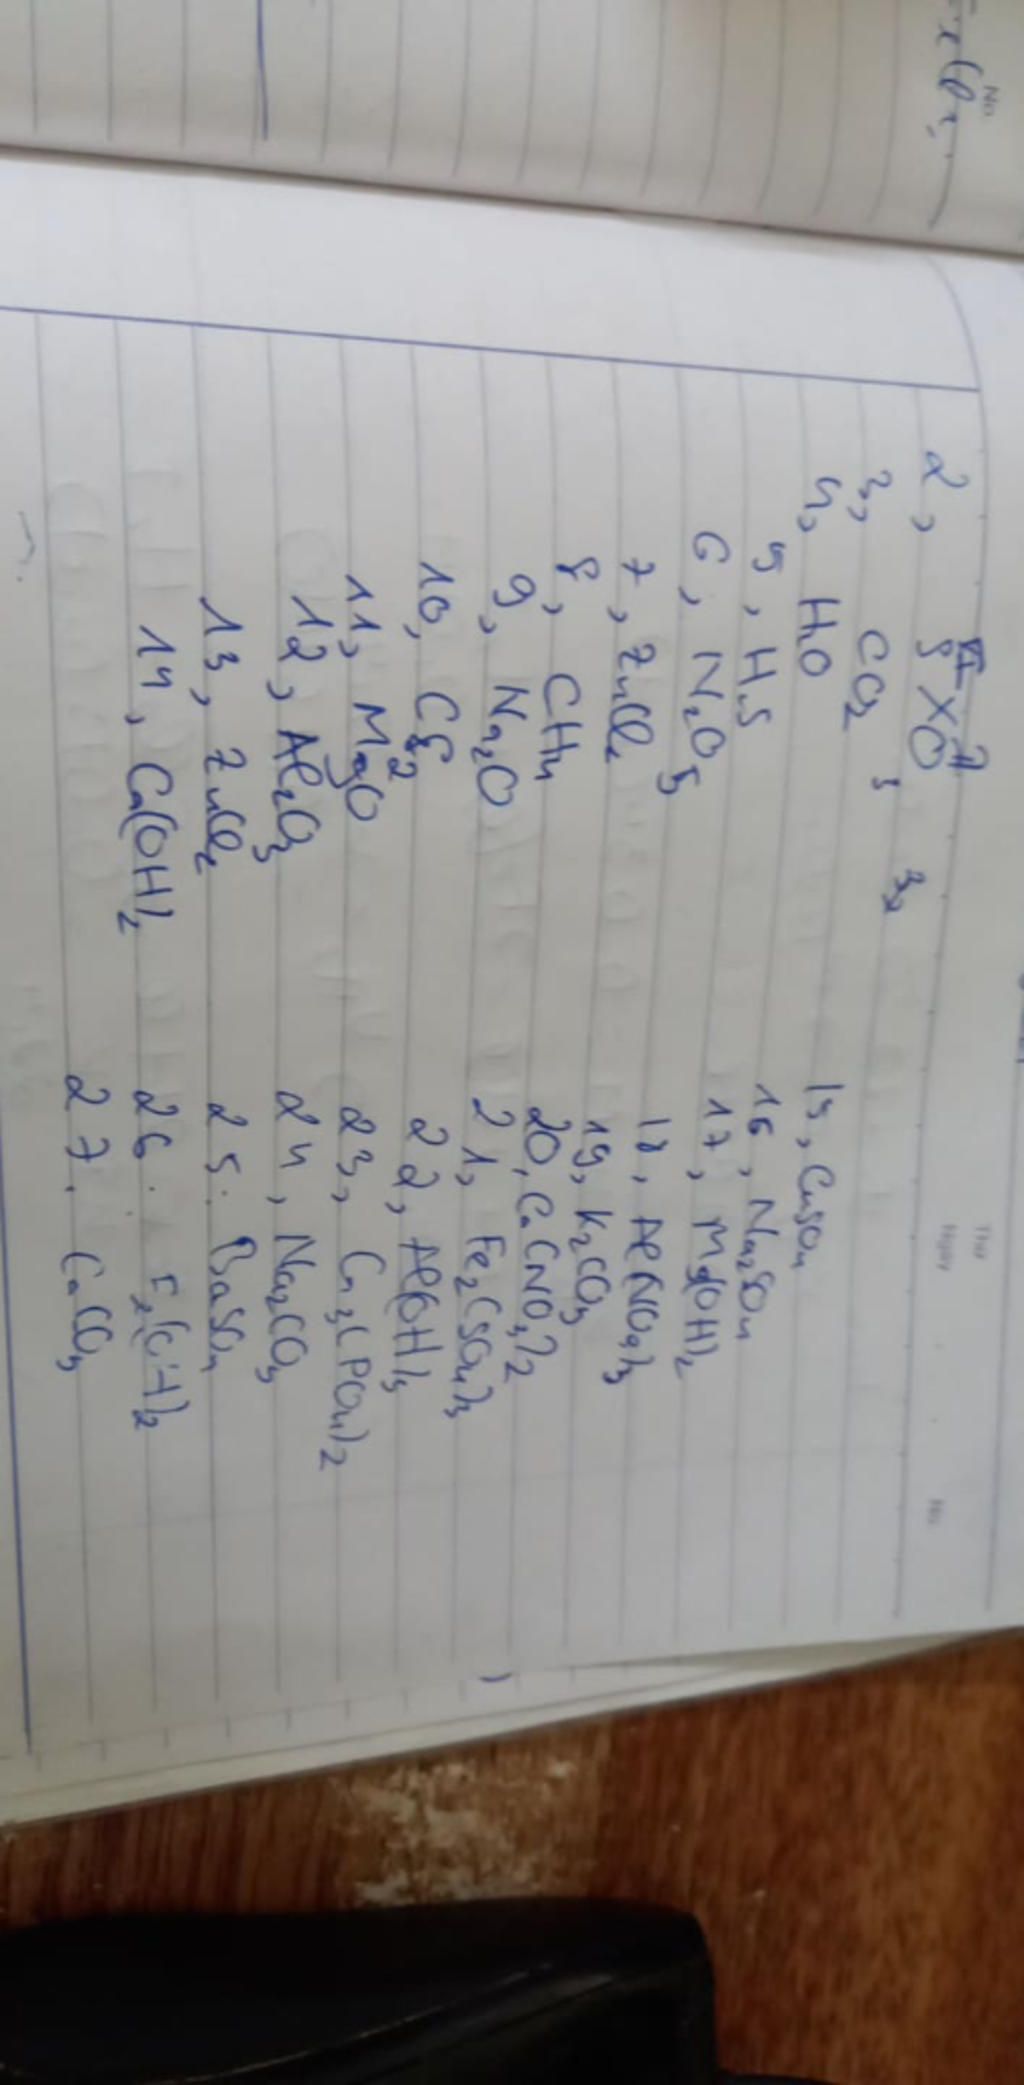 No.
Thứ
Ngày
No.
2, S X O
VI II
3, CO2
4, H2O
5, H2S
6, N2O5
7, ZnCl2
8, CH4
9, Na2O
10, CS2
11, MgO
12, Al2O3
13, ZnCl2
14, Ca(OH)2
15, CuSO4
16, Na2SO4
17, Mg(OH)2
18, Al(NO3)3
19, K2CO3
20, Ca(NO3)2
21, Fe2(SO4)3
22, Al(OH)3
23, Ca3(PO4)2
24, Na2CO3
25. BaSO4
26.
27. CaCO3